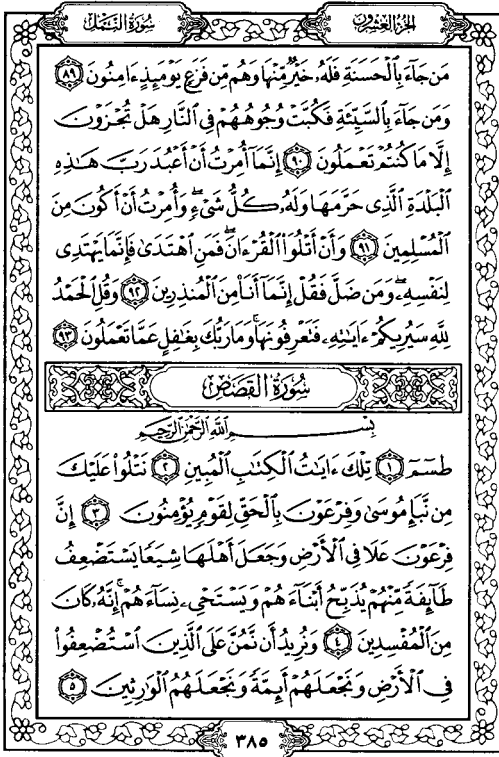 الجزء العشرون
سورة النمل
مَن جَآءَ بِالْحَسَنَةِ فَلَهُۥ خَيْرٌ مِّنْهَا وَهُم مِّن فَزَعٍ يَوْمَئِذٍ ءَامِنُونَ ٨٩
وَمَن جَآءَ بِالسَّيِّئَةِ فَكُبَّتْ وُجُوهُهُمْ فِى النَّارِ هَلْ تُجْزَوْنَ
إِلَّا مَا كُنتُمْ تَعْمَلُونَ ٩٠ إِنَّمَآ أُمِرْتُ أَنْ أَعْبُدَ رَبَّ هَٰذِهِ
الْبَلْدَةِ الَّذِى حَرَّمَهَا وَلَهُۥ كُلُّ شَىْءٍ ۖ وَأُمِرْتُ أَنْ أَكُونَ مِنَ
الْمُسْلِمِينَ ٩١ وَأَنْ أَتْلُوَا۟ الْقُرْءَانَ ۖ فَمَنِ اهْتَدَىٰ فَإِنَّمَا يَهْتَدِى
لِنَفْسِهِۦ ۖ وَمَن ضَلَّ فَقُلْ إِنَّمَآ أَنَا۠ مِنَ الْمُنذِرِينَ ٩٢ وَقُلِ الْحَمْدُ
لِلَّهِ سَيُرِيكُمْ ءَايَٰتِهِۦ فَتَعْرِفُونَهَا ۚ وَمَا رَبُّكَ بِغَٰفِلٍ عَمَّا تَعْمَلُونَ ٩٣
سورة القصص
بِسْمِ اللَّهِ الرَّحْمَٰنِ الرَّحِيمِ
طسٓمٓ ١ تِلْكَ ءَايَٰتُ الْكِتَٰبِ الْمُبِينِ ٢ نَتْلُوا۟ عَلَيْكَ
مِن نَّبَإِ مُوسَىٰ وَفِرْعَوْنَ بِالْحَقِّ لِقَوْمٍ يُؤْمِنُونَ ٣ إِنَّ
فِرْعَوْنَ عَلَا فِى الْأَرْضِ وَجَعَلَ أَهْلَهَا شِيَعًا يَسْتَضْعِفُ
طَآئِفَةً مِّنْهُمْ يُذَبِّحُ أَبْنَآءَهُمْ وَيَسْتَحْىِۦ نِسَآءَهُمْ ۚ إِنَّهُۥ كَانَ
مِنَ الْمُفْسِدِينَ ٤ وَنُرِيدُ أَن نَّمُنَّ عَلَى الَّذِينَ اسْتُضْعِفُوا۟
فِى الْأَرْضِ وَنَجْعَلَهُمْ أَئِمَّةً وَنَجْعَلَهُمُ الْوَٰرِثِينَ ٥
٣٨٥